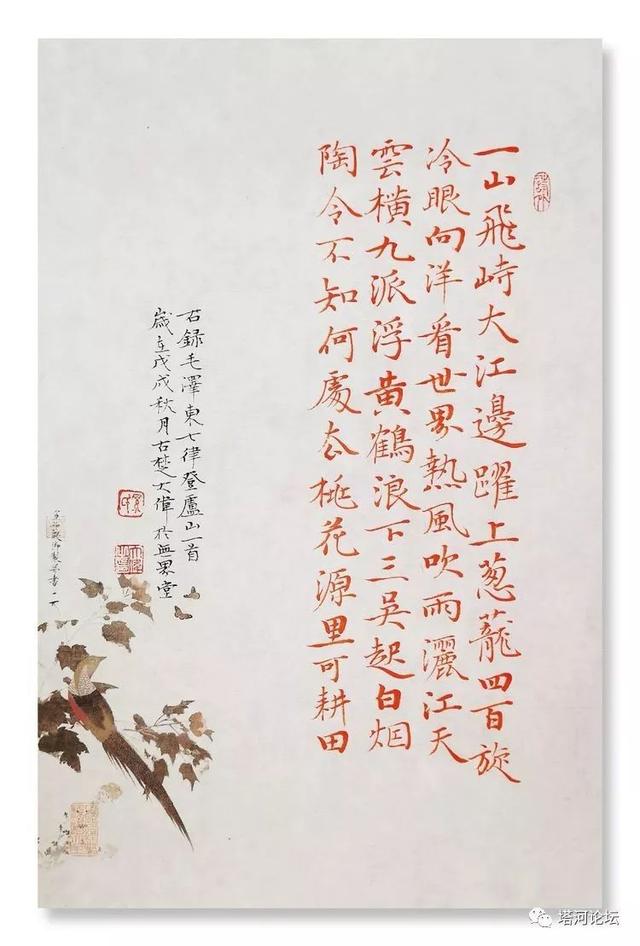 一山飛峙大江邊躍上葱蘢四百旋
冷眼向洋看世界熱風吹雨灑江天
雲橫九派浮黄鶴浪下三吳起白烟
陶令不知何處去桃花源里可耕田
右録毛澤東七律登廬山一首
歲在戊戌秋月古楚大偉於無界堂
宣和殿御製并書
塔河论坛